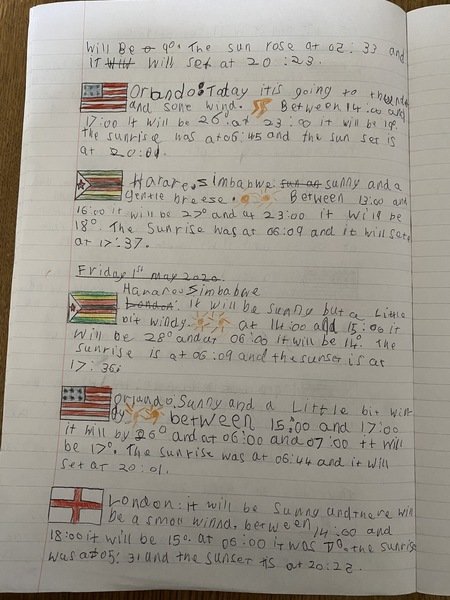 Will Be 9°. The sun rose at 05: 33 and
it will set at 20 : 23.
Orlando: Today it is going to thunder
and some wind. Between 14:00 and
17:00 It will be 26. at 23 :00 it will be 19°.
the sunrise was at 06:45 and the sun set is
at 20:01.
Harare, Simbabwe: sunny and a
gentle breeze. Between 13:00 and
16:00 it will be 27° and at 23:00 it will be
18°. The Sunrise was at 06:09 and it will set
at 17:37.
Friday 1st May 2020.
Harare, Simbabwe
London: It will be sunny but a Little
bit windy at 14:00 and 15:00 it
will be 28° and at 06:00 it will be 14°. The
sunrise is at 06:09 and the sunset is at
17:36.
Orlando. Sunny and a Little bit win
dy between 15:00 and 17:00
it will by 26° and at 06:00 and 07:00 it will
be 17°. The sunrise was at 06:44 and it will
set at 20:01.
London: it will be Sunny and there will
be a small winnd, between 14:00 and
18:00 it will be 15°. at 06:00 it was 7°. the sunrise
was at 05: 31 and the sunset is at 20:22.